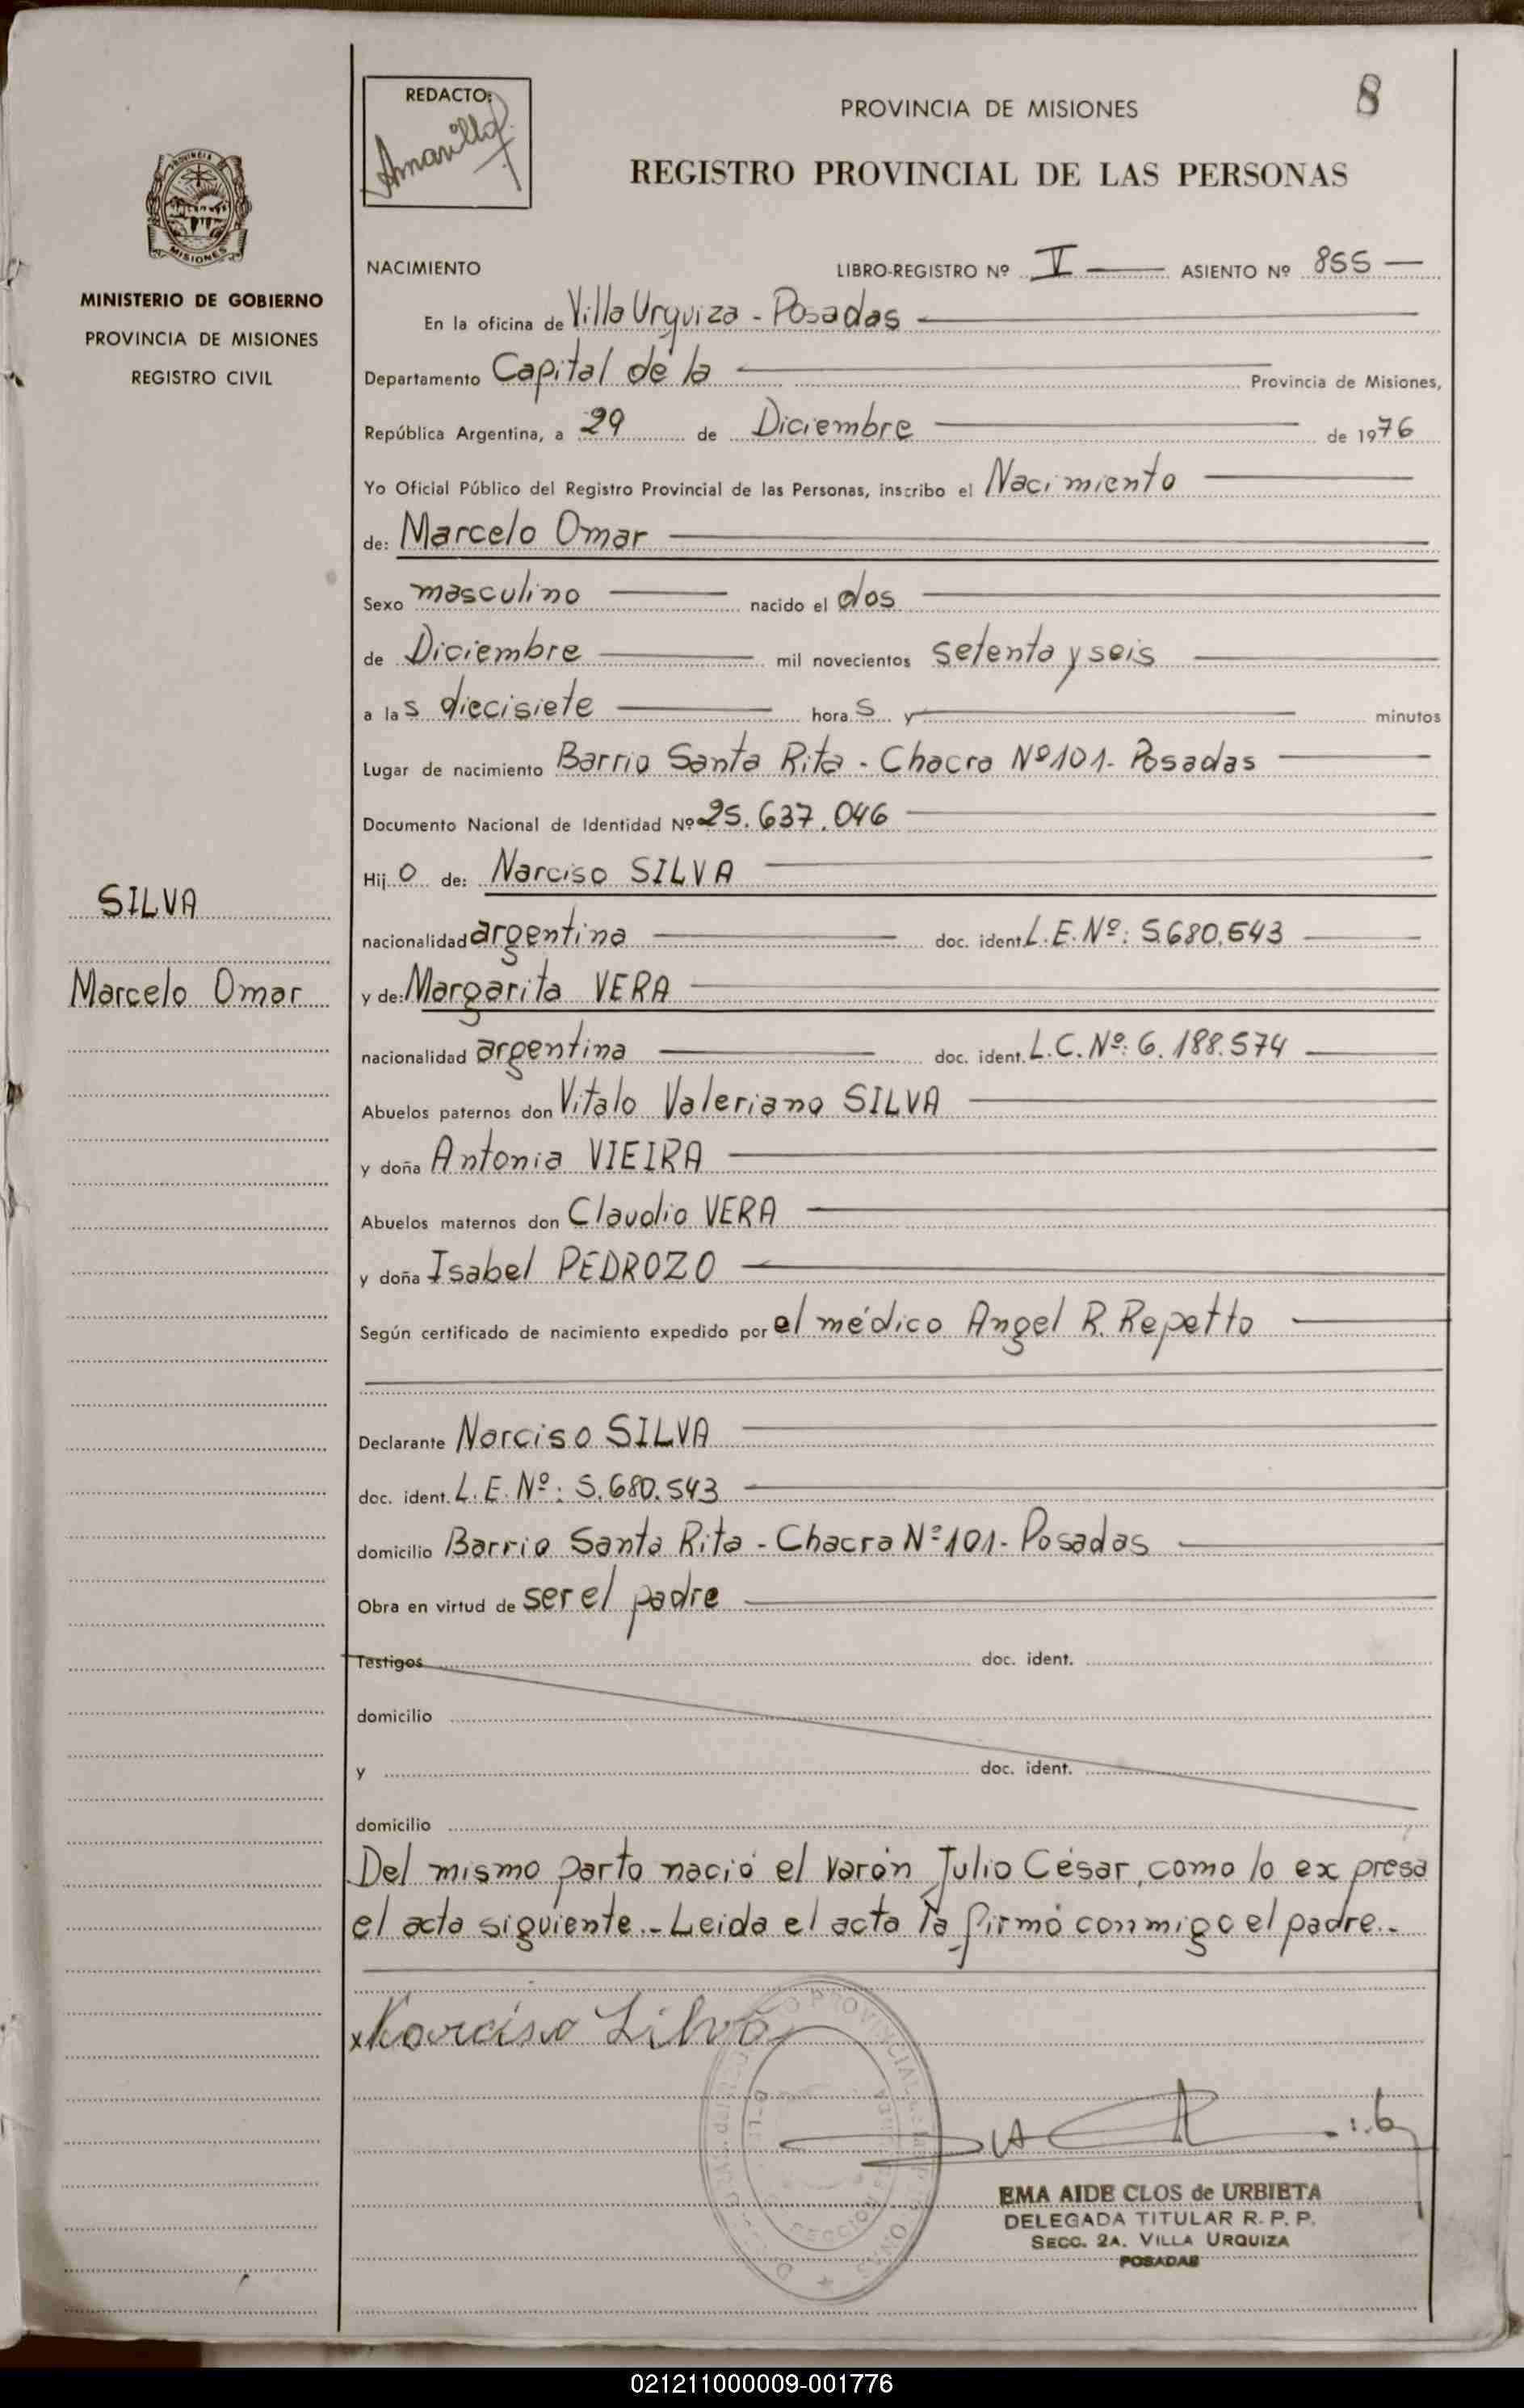 8
REDACTO:
Amarilla
PROVINCIA DE MISIONES
REGISTRO PROVINCIAL DE LAS PERSONAS
MISIONES
MINISTERIO DE GOBIERNO
PROVINCIA DE MISIONES
REGISTRO CIVIL
NACIMIENTO LIBRO-REGISTRO Nº V ASIENTO Nº 855
En la oficina de Villa Urquiza - Posadas
Departamento Capital de la Provincia de Misiones,
República Argentina, a 29 de Diciembre de 1976
Yo Oficial Público del Registro Provincial de las Personas, inscribo el Nacimiento
de: Marcelo Omar
Sexo masculino nacido el dos
de Diciembre mil novecientos setenta y seis
a las diecisiete horas y minutos
Lugar de nacimiento Barrio Santa Rita - Chacra Nº 101 - Posadas
Documento Nacional de Identidad Nº 25.637.046
Hijo de: Narciso SILVA
SILVA
nacionalidad argentina doc. ident. L.E. Nº: 5.680.543
Marcelo Omar
y de: Margarita VERA
nacionalidad argentina doc. ident. L.C. Nº: 6.188.574
Abuelos paternos don Vitalo Valeriano SILVA
y doña Antonia VIEIRA
Abuelos maternos don Claudio VERA
y doña Isabel PEDROZO
Según certificado de nacimiento expedido por el médico Angel R. Repetto
Declarante Narciso SILVA
doc. ident. L.E. Nº: 5.680.543
domicilio Barrio Santa Rita - Chacra Nº 101 - Posadas
Obra en virtud de ser el padre
Testigos doc. ident.
domicilio
y doc. ident.
domicilio
Del mismo parto nació el varón Julio César, como lo expresa
el acta siguiente.- Leida el acta la firmó conmigo el padre.-
x Narciso Silva
EMA AIDE CLOS de URBIETA
DELEGADA TITULAR R. P. P.
SECC. 2A. VILLA URQUIZA
POSADAS
021211000009-001776